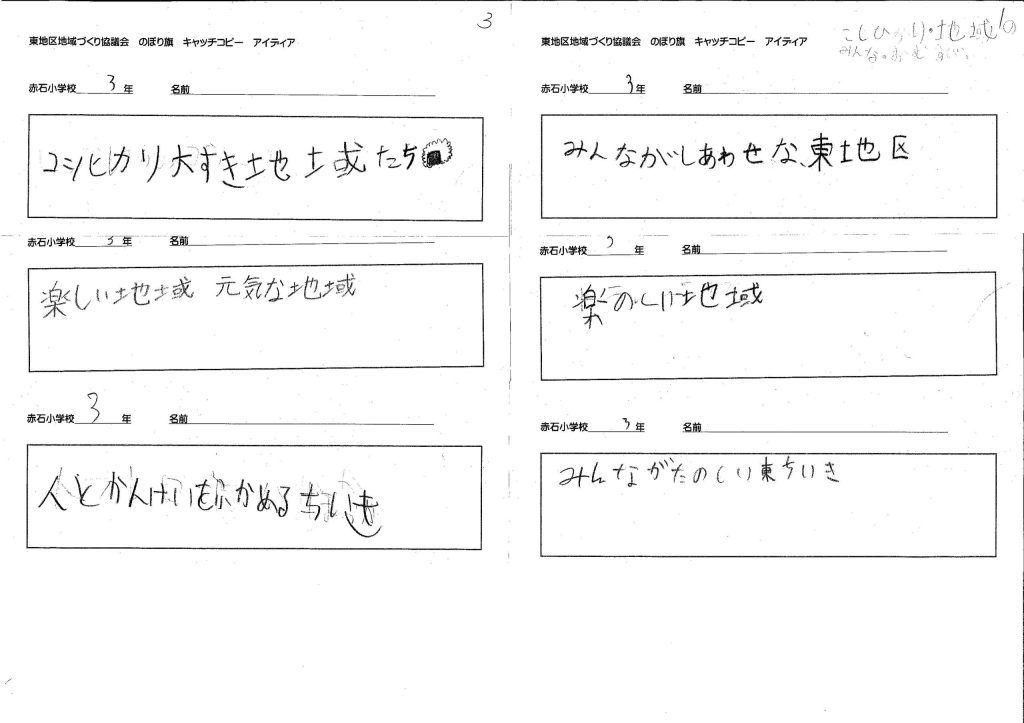 3
東地区地域づくり協議会 のぼり旗 キャッチコピー アイディア
赤石小学校 3 年 名前
コシヒカリ大すき地域たち
赤石小学校 3 年 名前
楽しい地域 元気な地域
赤石小学校 3 年 名前
人とかんけいをふかめるちいき
こしひかり・地域の
みんな・おむすび。
東地区地域づくり協議会 のぼり旗 キャッチコピー アイディア
赤石小学校 3 年 名前
みんながしあわせな、東地区
赤石小学校 3 年 名前
楽のしい地域
赤石小学校 3 年 名前
みんながたのしい東ちいき